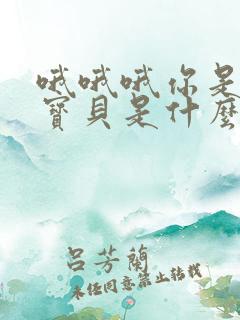 哦哦哦你是
寶貝是什麼
呂芳蘭
未经同意禁止转载